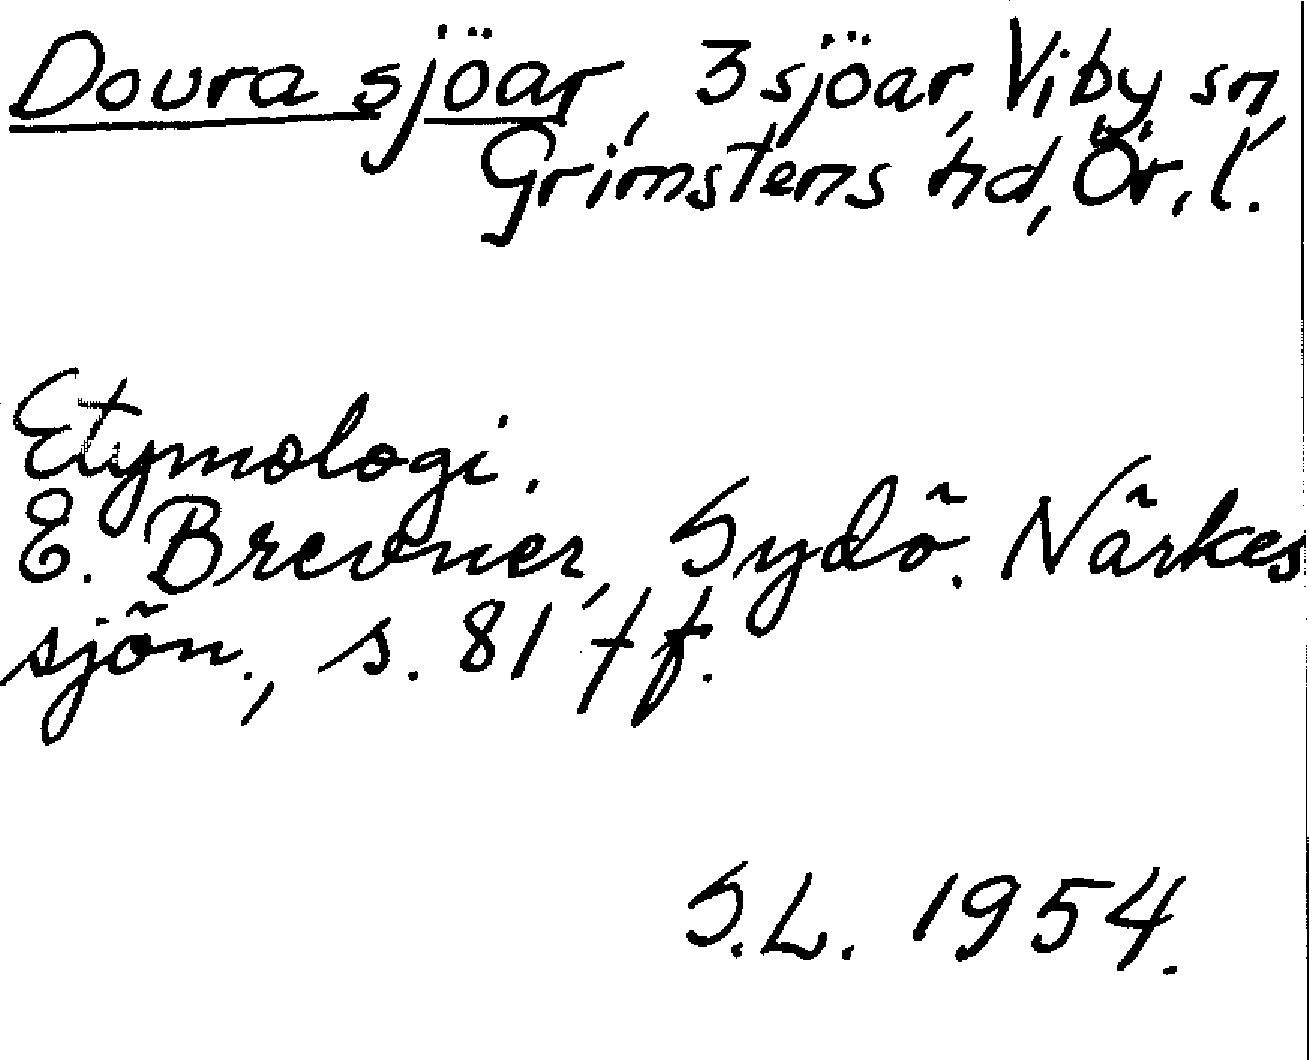 Dovra sjöar, 3 sjöar, Viby sn,
Grimstens hd, Ör. l.
Etymologi.
E. Brevner, Sydö. Närkes
sjön., s. 81 ff.
S.L. 1954.